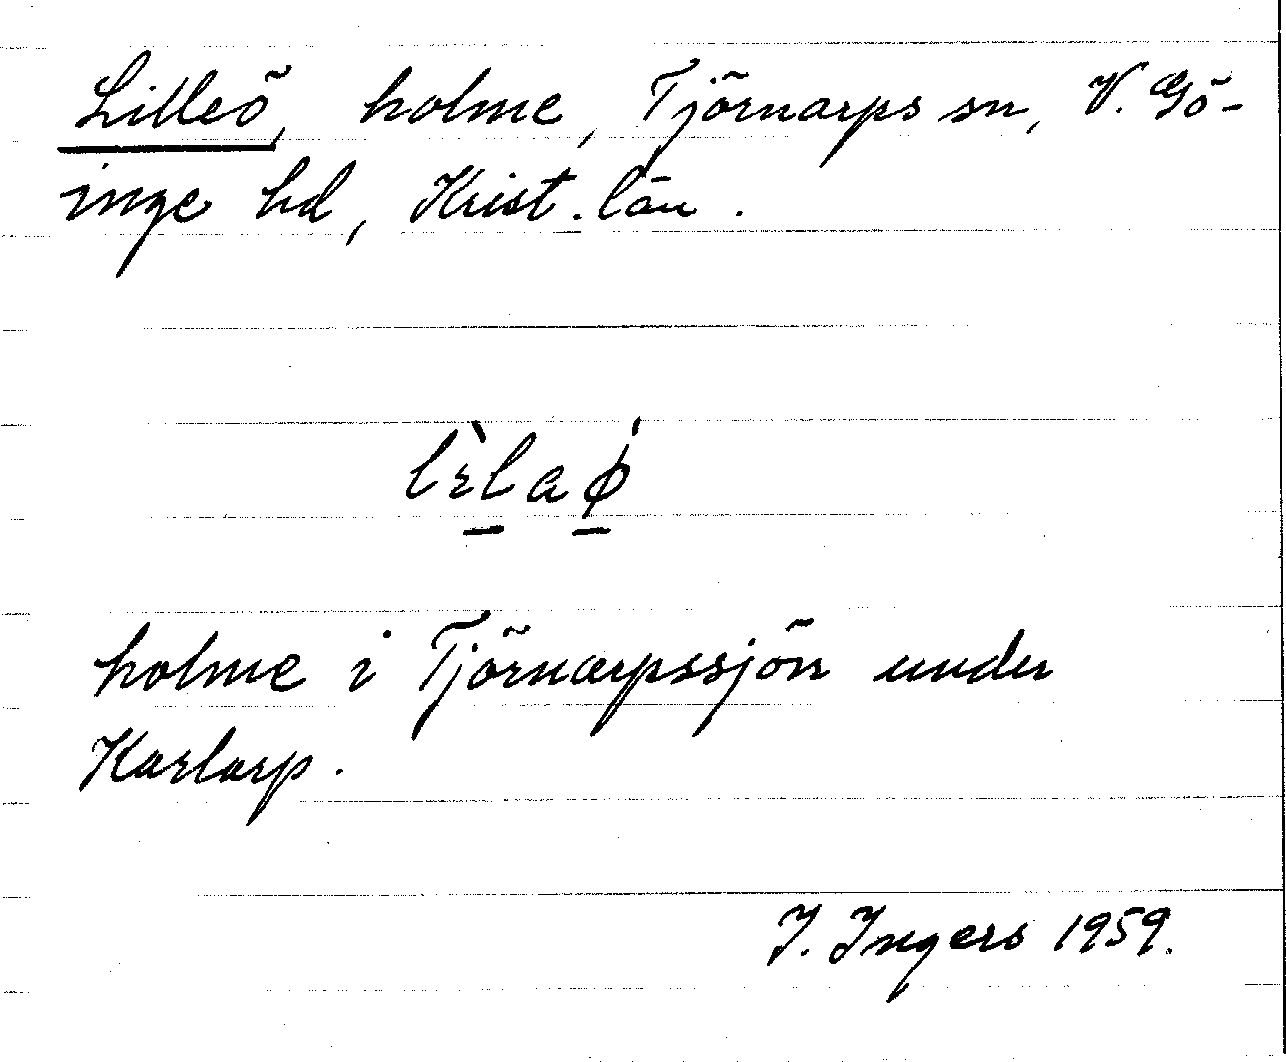 Lilleö, holme, Tjörnarps sn, V. Gö-
inge hd, Krist. län.
lèlaǿ
holme i Tjörnarpssjön under
Karlarp.
I. Ingers 1959.